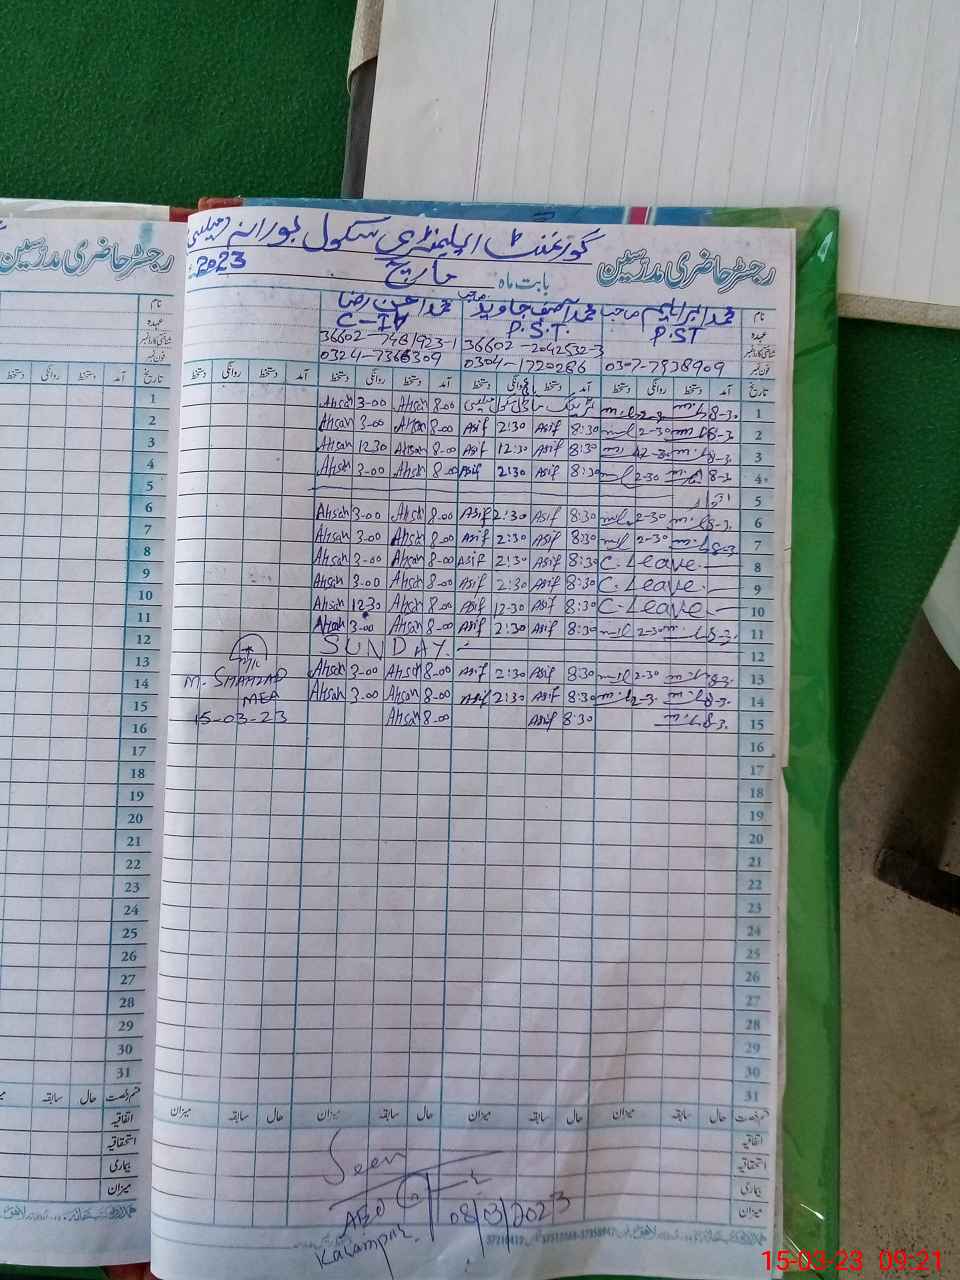 رجسٹر حاضری مدرسین گورنمنٹ ایلیمنٹری سکول بورانہ
بابت ماہ مارچ 2023
نام محمد ابراہیم صاحب محمد آصف جاوید صاحب محمد احسن رضا
عہدہ P.ST P.S.T. C-IV
شناختی کارڈ نمبر 36602-2042532-3
فون نمبر 0307-7938909 0304-1720286
تاریخ آمد دستخط روانگی دستخط آمد دستخط روانگی دستخط آمد دستخط روانگی دستخط آمد دستخط روانگی دستخط
1 8-3. 2-3 8-00 Ahsan 3-00 Ahsan
2 8-3. 2-30 8:30 Asif 2:30 Asif 8-00 Ahsan 3-00 Ahsan
3 8-3. 8:30 Asif 12:30 Asif 8-00 Ahsan 12 30 Ahsan
4 8-3. 2-30 8:30 Asif 2:30 Asif 8-00 Ahsan 3-00 Ahsan
5 اتوار
6 8-3. 2-30 8:30 Asif 2:30 Asif 8-00 Ahsan 3-00 Ahsan
7 8-3. 2-30 8:30 Asif 2:30 Asif 8-00 Ahsan 3-00 Ahsan
8 C. Leave. 8:30 Asif 2:30 Asif 8-00 Ahsan 3-00 Ahsan
9 C. Leave 8:30 Asif 2:30 Asif 8-00 Ahsan 3-00 Ahsan
10 C. Leave 8:30 Asif 12-30 Asif 8-00 Ahsan 12 30 Ahsan
11 8-3. 2-30 8:30 Asif 2:30 Asif 8-00 Ahsan 3-00 Ahsan
12 SUNDAY.
13 8-3. 2-30 8:30 Asif 2:30 Asif 8-00 Ahsan 3-00 Ahsan
14 8-3. 2-3. 8:30 Asif 2:30 Asif 8-00 Ahsan 3-00 Ahsan
15 8-3. 8:30 Asif 8-00 Ahsan
M. SHAHZAD
MEA
15-03-23
16
17
18
19
20
21
22
23
24
25
26
27
28
29
30
31
قسم رخصت حال سابقہ میزان حال سابقہ میزان حال سابقہ میزان حال سابقہ میزان
اتفاقیہ
استحقاقیہ
بیماری
میزان
Seen
AEO
08/3/2023
رجسٹر حاضری مدرسین
نام
عہدہ
شناختی کارڈ نمبر
فون نمبر
تاریخ آمد دستخط روانگی دستخط
1
2
3
4
5
6
7
8
9
10
11
12
13
14
15
16
17
18
19
20
21
22
23
24
25
26
27
28
29
30
31
قسم رخصت حال سابقہ
اتفاقیہ
استحقاقیہ
بیماری
میزان
15-03-23 09:21